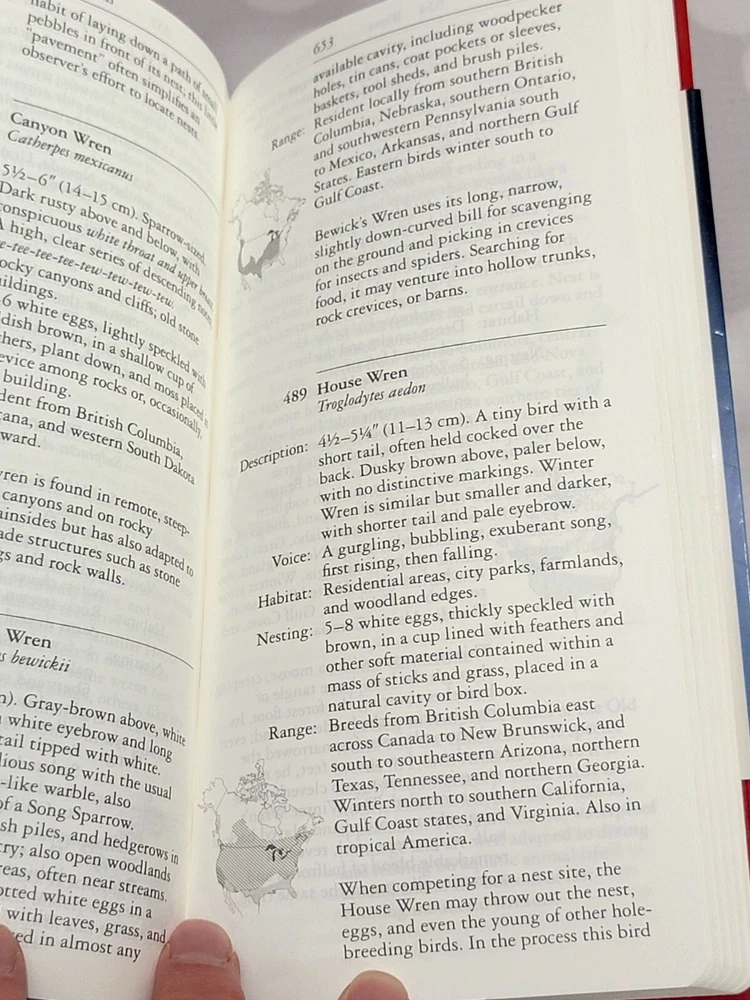 habit of laying down a path of small
pebbles in front of its nest; this little
"pavement" often simplifies an
observer's effort to locate nests.
Canyon Wren
Catherpes mexicanus
5½–6" (14–15 cm). Sparrow-sized.
Dark rusty above and below, with
conspicuous white throat and upper breast.
A high, clear series of descending notes
-tee-tee-tee-tew-tew-tew-tew.
ocky canyons and cliffs; old stone
uildings.
6 white eggs, lightly speckled with
ldish brown, in a shallow cup of
thers, plant down, and moss placed in
evice among rocks or, occasionally,
building.
dent from British Columbia,
tana, and western South Dakota
ward.
wren is found in remote, steep-
canyons and on rocky
ainsides but has also adapted to
ade structures such as stone
gs and rock walls.
Wren
s bewickii
m). Gray-brown above, white
white eyebrow and long
tail tipped with white.
dious song with the usual
-like warble, also
of a Song Sparrow.
sh piles, and hedgerows in
ry; also open woodlands
reas, often near streams.
otted white eggs in a
with leaves, grass, and
ed in almost any
653
available cavity, including woodpecker
holes, tin cans, coat pockets or sleeves,
baskets, tool sheds, and brush piles.
Range: Resident locally from southern British
Columbia, Nebraska, southern Ontario,
and southwestern Pennsylvania south
to Mexico, Arkansas, and northern Gulf
States. Eastern birds winter south to
Gulf Coast.
Bewick's Wren uses its long, narrow,
slightly down-curved bill for scavenging
on the ground and picking in crevices
for insects and spiders. Searching for
food, it may venture into hollow trunks,
rock crevices, or barns.
489 House Wren
Troglodytes aedon
Description: 4½–5¼" (11–13 cm). A tiny bird with a
short tail, often held cocked over the
back. Dusky brown above, paler below,
with no distinctive markings. Winter
Wren is similar but smaller and darker,
with shorter tail and pale eyebrow.
Voice: A gurgling, bubbling, exuberant song,
first rising, then falling.
Habitat: Residential areas, city parks, farmlands,
and woodland edges.
Nesting: 5–8 white eggs, thickly speckled with
brown, in a cup lined with feathers and
other soft material contained within a
mass of sticks and grass, placed in a
natural cavity or bird box.
Range: Breeds from British Columbia east
across Canada to New Brunswick, and
south to southeastern Arizona, northern
Texas, Tennessee, and northern Georgia.
Winters north to southern California,
Gulf Coast states, and Virginia. Also in
tropical America.
When competing for a nest site, the
House Wren may throw out the nest,
eggs, and even the young of other hole-
breeding birds. In the process this bird